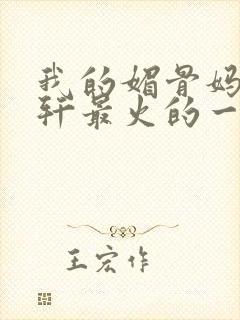 我的媚骨妈
轩最火的一
王宏作